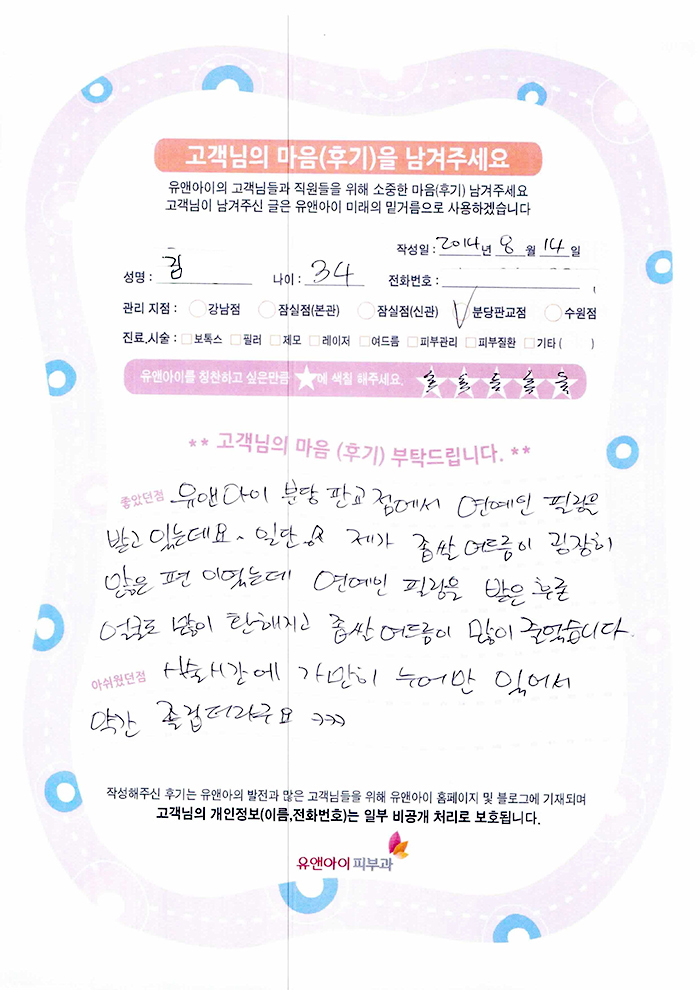 고객님의 마음(후기)을 남겨주세요
유앤아이의 고객님들과 직원들을 위해 소중한 마음(후기) 남겨주세요
고객님이 남겨주신 글은 유앤아이 미래의 밑거름으로 사용하겠습니다
작성일 : 2014년 8월 14일
성명 : 김 나이 : 34 전화번호 :
관리 지점 : 강남점 잠실점(본관) 잠실점(신관) 분당판교점 수원점
진료,시술 : 보톡스 필러 제모 레이저 여드름 피부관리 피부질환 기타 ( )
유앤아이를 칭찬하고 싶은만큼 ★에 색칠 해주세요.
** 고객님의 마음 (후기) 부탁드립니다. **
좋았던점 유앤아이 분당 판교점에서 연예인 필링을
받고 있는데요~ 일단 제가 좁쌀 여드름이 굉장히
많은 편 이었는데 연예인 필링을 받은 후론
얼굴도 많이 탄해지고 좁쌀 여드름이 많이 줄었습니다.
아쉬웠던점 시술시간에 가만히 누어만 있어서
약간 졸립더라구요 ㅋㅋㅋ
작성해주신 후기는 유앤아의 발전과 많은 고객님들을 위해 유앤아이 홈페이지 및 블로그에 기재되며
고객님의 개인정보(이름,전화번호)는 일부 비공개 처리로 보호됩니다.
유앤아이피부과